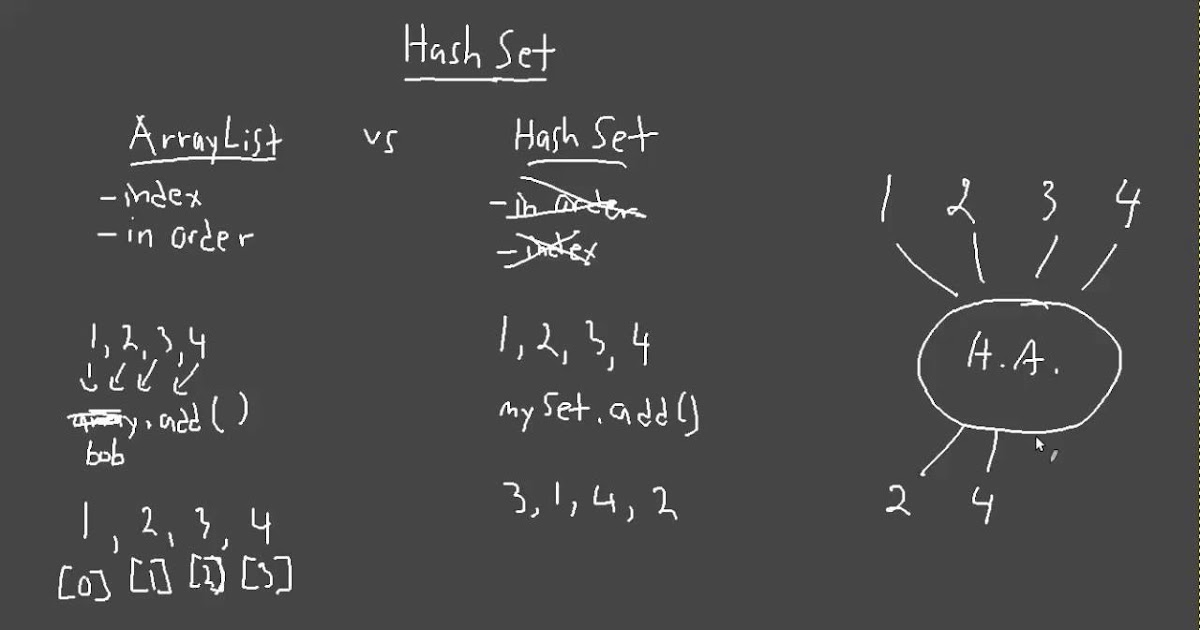 Hash Set
ArrayList vs Hash Set
- index
- in order
- in order
- index
1, 2, 3, 4
array.add()
bob
1, 2, 3, 4
[0] [1] [2] [3]
1, 2, 3, 4
mySet.add()
3, 1, 4, 2
1 2 3 4
H.A.
2 4